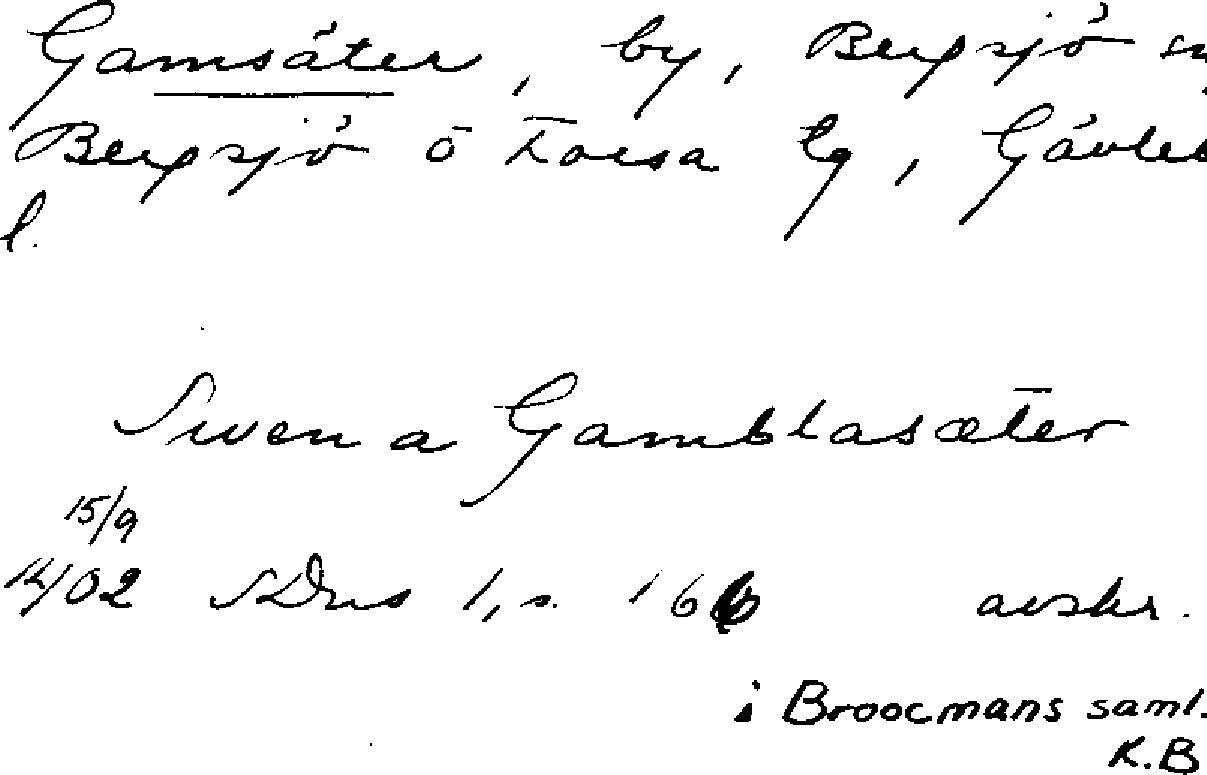 Gamsäter, by, Bergsjö sn,
Bergsjö o Forsa tg, Gävleb
l.
Swen a Gamblasæter
15/9
1402 SDns 1, s. 166 avskr.
i Broocmans saml.
K.B